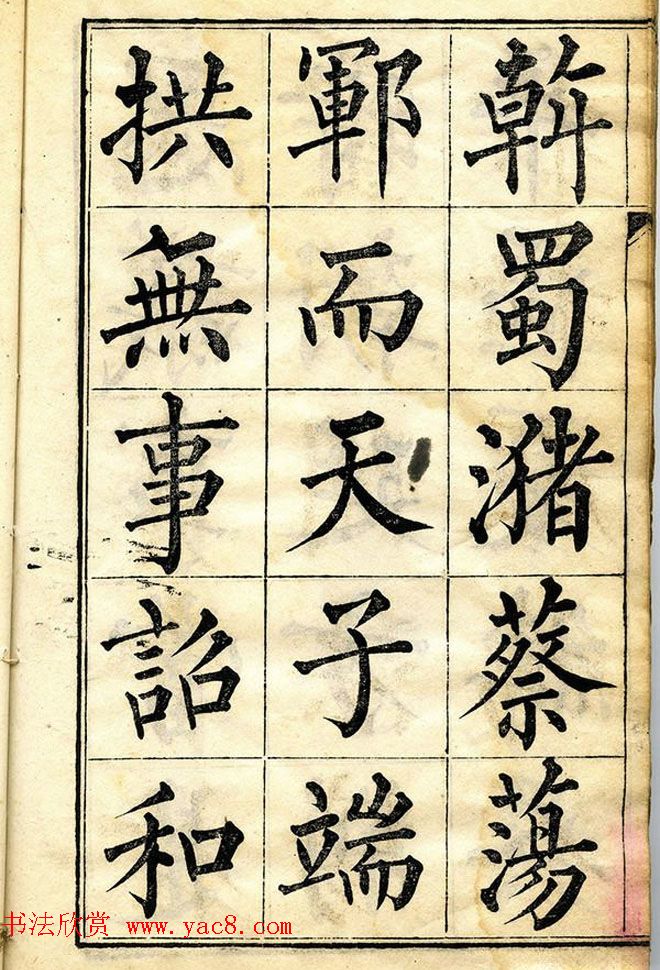 斡蜀瀦蔡蕩
鄆而天子端
拱無事詔和
书法欣赏 www.yac8.com